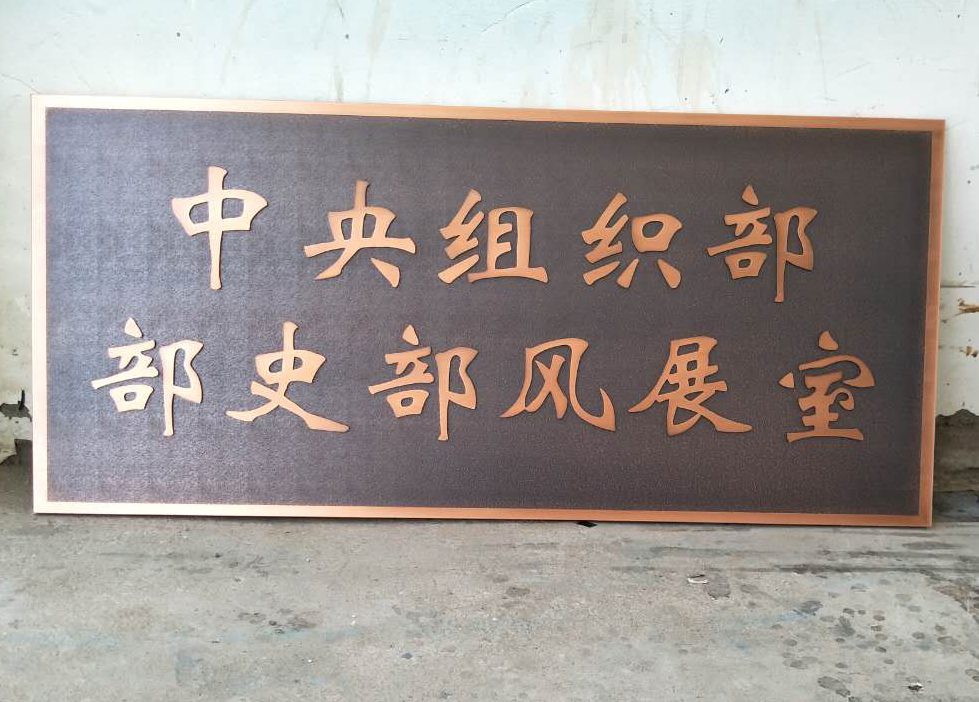 中央组织部
部史部风展室